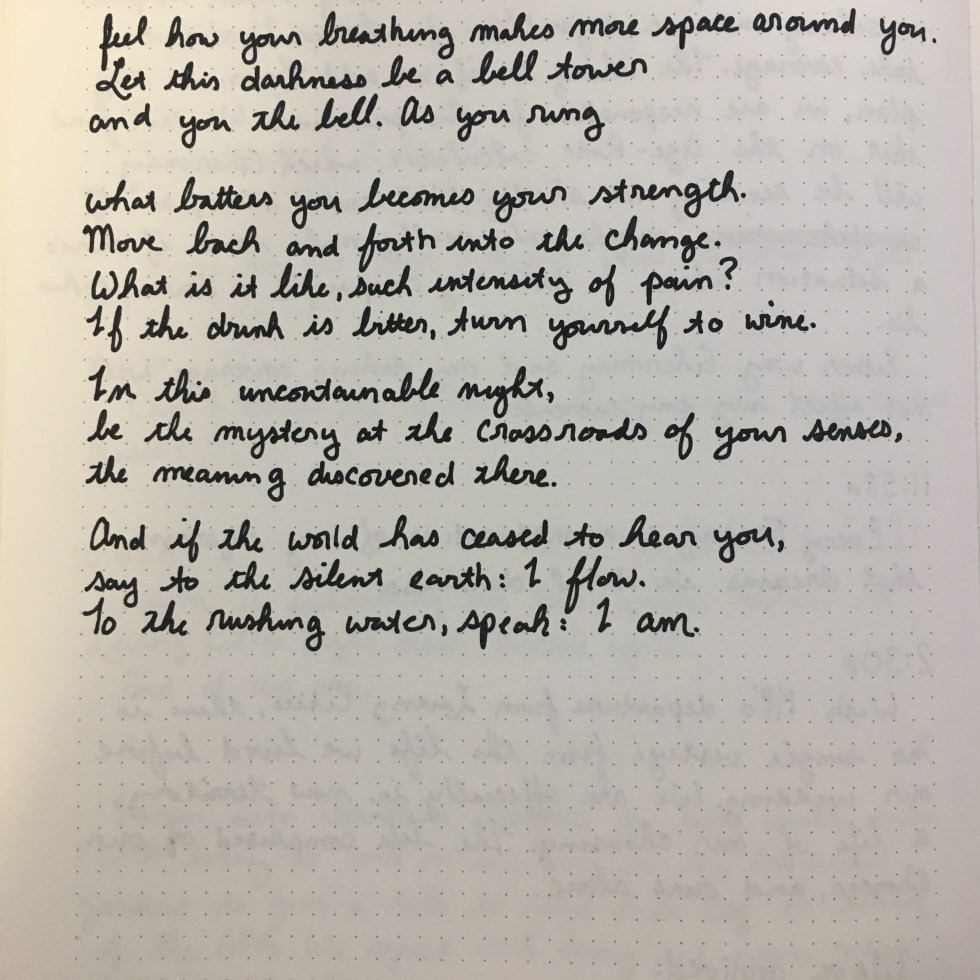 feel how your breathing makes more space around you.
Let this darkness be a bell tower
and you the bell. As you rung
what batters you becomes your strength.
Move back and forth into the change.
What is it like, such intensity of pain?
If the drink is bitter, turn yourself to wine.
In this uncontainable night,
be the mystery at the crossroads of your senses,
the meaning discovered there.
And if the world has ceased to hear you,
say to the silent earth: I flow.
To the rushing water, speak: I am.